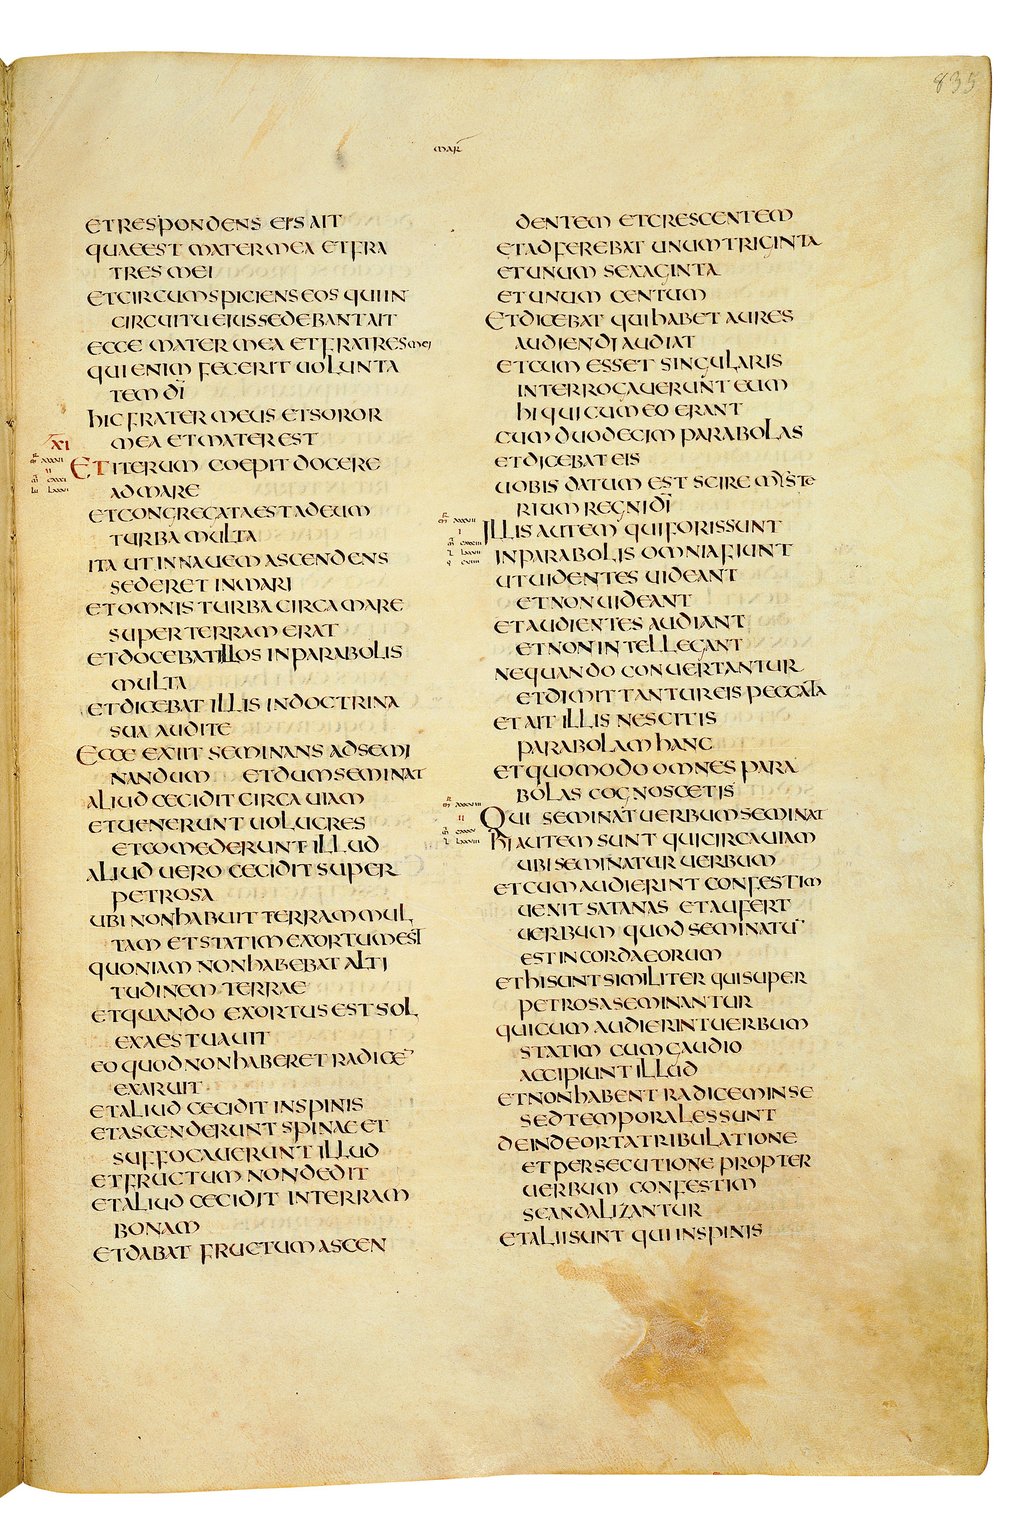 835
MAR
ET RESPONDENS EIS AIT
QUAE EST MATER MEA ET FRA
TRES MEI
ET CIRCUMSPICIENS EOS QUI IN
CIRCUITU EIUS SEDEBANT AIT
ECCE MATER MEA ET FRATRES MEI
QUI ENIM FECERIT UOLUNTA
TEM DĪ
HIC FRATER MEUS ET SOROR
MEA ET MATER EST
XI
ET ITERUM COEPIT DOCERE
AD MARE
ET CONGREGATA EST AD EUM
TURBA MULTA
ITA UT IN NAUEM ASCENDENS
SEDERET IN MARI
ET OMNIS TURBA CIRCA MARE
SUPER TERRAM ERAT
ET DOCEBAT ILLOS IN PARABOLIS
MULTA
ET DICEBAT ILLIS IN DOCTRINA
SUA AUDITE
ECCE EXIIT SEMINANS AD SEMI
NANDUM ET DUM SEMINAT
ALIUD CECIDIT CIRCA UIAM
ET UENERUNT UOLUCRES
ET COMEDERUNT ILLUD
ALIUD UERO CECIDIT SUPER
PETROSA
UBI NON HABUIT TERRAM MUL
TAM ET STATIM EXORTUM EST
QUONIAM NON HABEBAT ALTI
TUDINEM TERRAE
ET QUANDO EXORTUS EST SOL
EXAESTUAUIT
EO QUOD NON HABERET RADICE¯
EXARUIT
ET ALIUD CECIDIT IN SPINIS
ET ASCENDERUNT SPINAE ET
SUFFOCAUERUNT ILLUD
ET FRUCTUM NON DEDIT
ET ALIUD CECIDIT IN TERRAM
BONAM
ET DABAT FRUCTUM ASCEN
DENTEM ET CRESCENTEM
ET ADFEREBAT UNUM TRIGINTA
ET UNUM SEXAGINTA
ET UNUM CENTUM
ET DICEBAT QUI HABET AURES
AUDIENDI AUDIAT
ET CUM ESSET SINGULARIS
INTERROGAUERUNT EUM
HI QUI CUM EO ERANT
CUM DUODECIM PARABOLAS
ET DICEBAT EIS
UOBIS DATUM EST SCIRE MYSTE
RIUM REGNI DĪ
ILLIS AUTEM QUI FORIS SUNT
IN PARABOLIS OMNIA FIUNT
UT UIDENTES UIDEANT
ET NON UIDEANT
ET AUDIENTES AUDIANT
ET NON INTELLEGANT
NEQUANDO CONUERTANTUR
ET DIMITTANTUR EIS PECCATA
ET AIT ILLIS NESCITIS
PARABOLAM HANC
ET QUOMODO OMNES PARA
BOLAS COGNOSCETIS
QUI SEMINAT UERBUM SEMINAT
HI AUTEM SUNT QUI CIRCA UIAM
UBI SEMINATUR UERBUM
ET CUM AUDIERINT CONFESTIM
UENIT SATANAS ET AUFERT
UERBUM QUOD SEMINATU¯
EST IN CORDA EORUM
ET HI SUNT SIMILITER QUI SUPER
PETROSA SEMINANTUR
QUI CUM AUDIERINT UERBUM
STATIM CUM GAUDIO
ACCIPIUNT ILLUD
ET NON HABENT RADICEM IN SE
SED TEMPORALES SUNT
DEINDE ORTA TRIBULATIONE
ET PERSECUTIONE PROPTER
UERBUM CONFESTIM
SCANDALIZANTUR
ET ALII SUNT QUI IN SPINIS